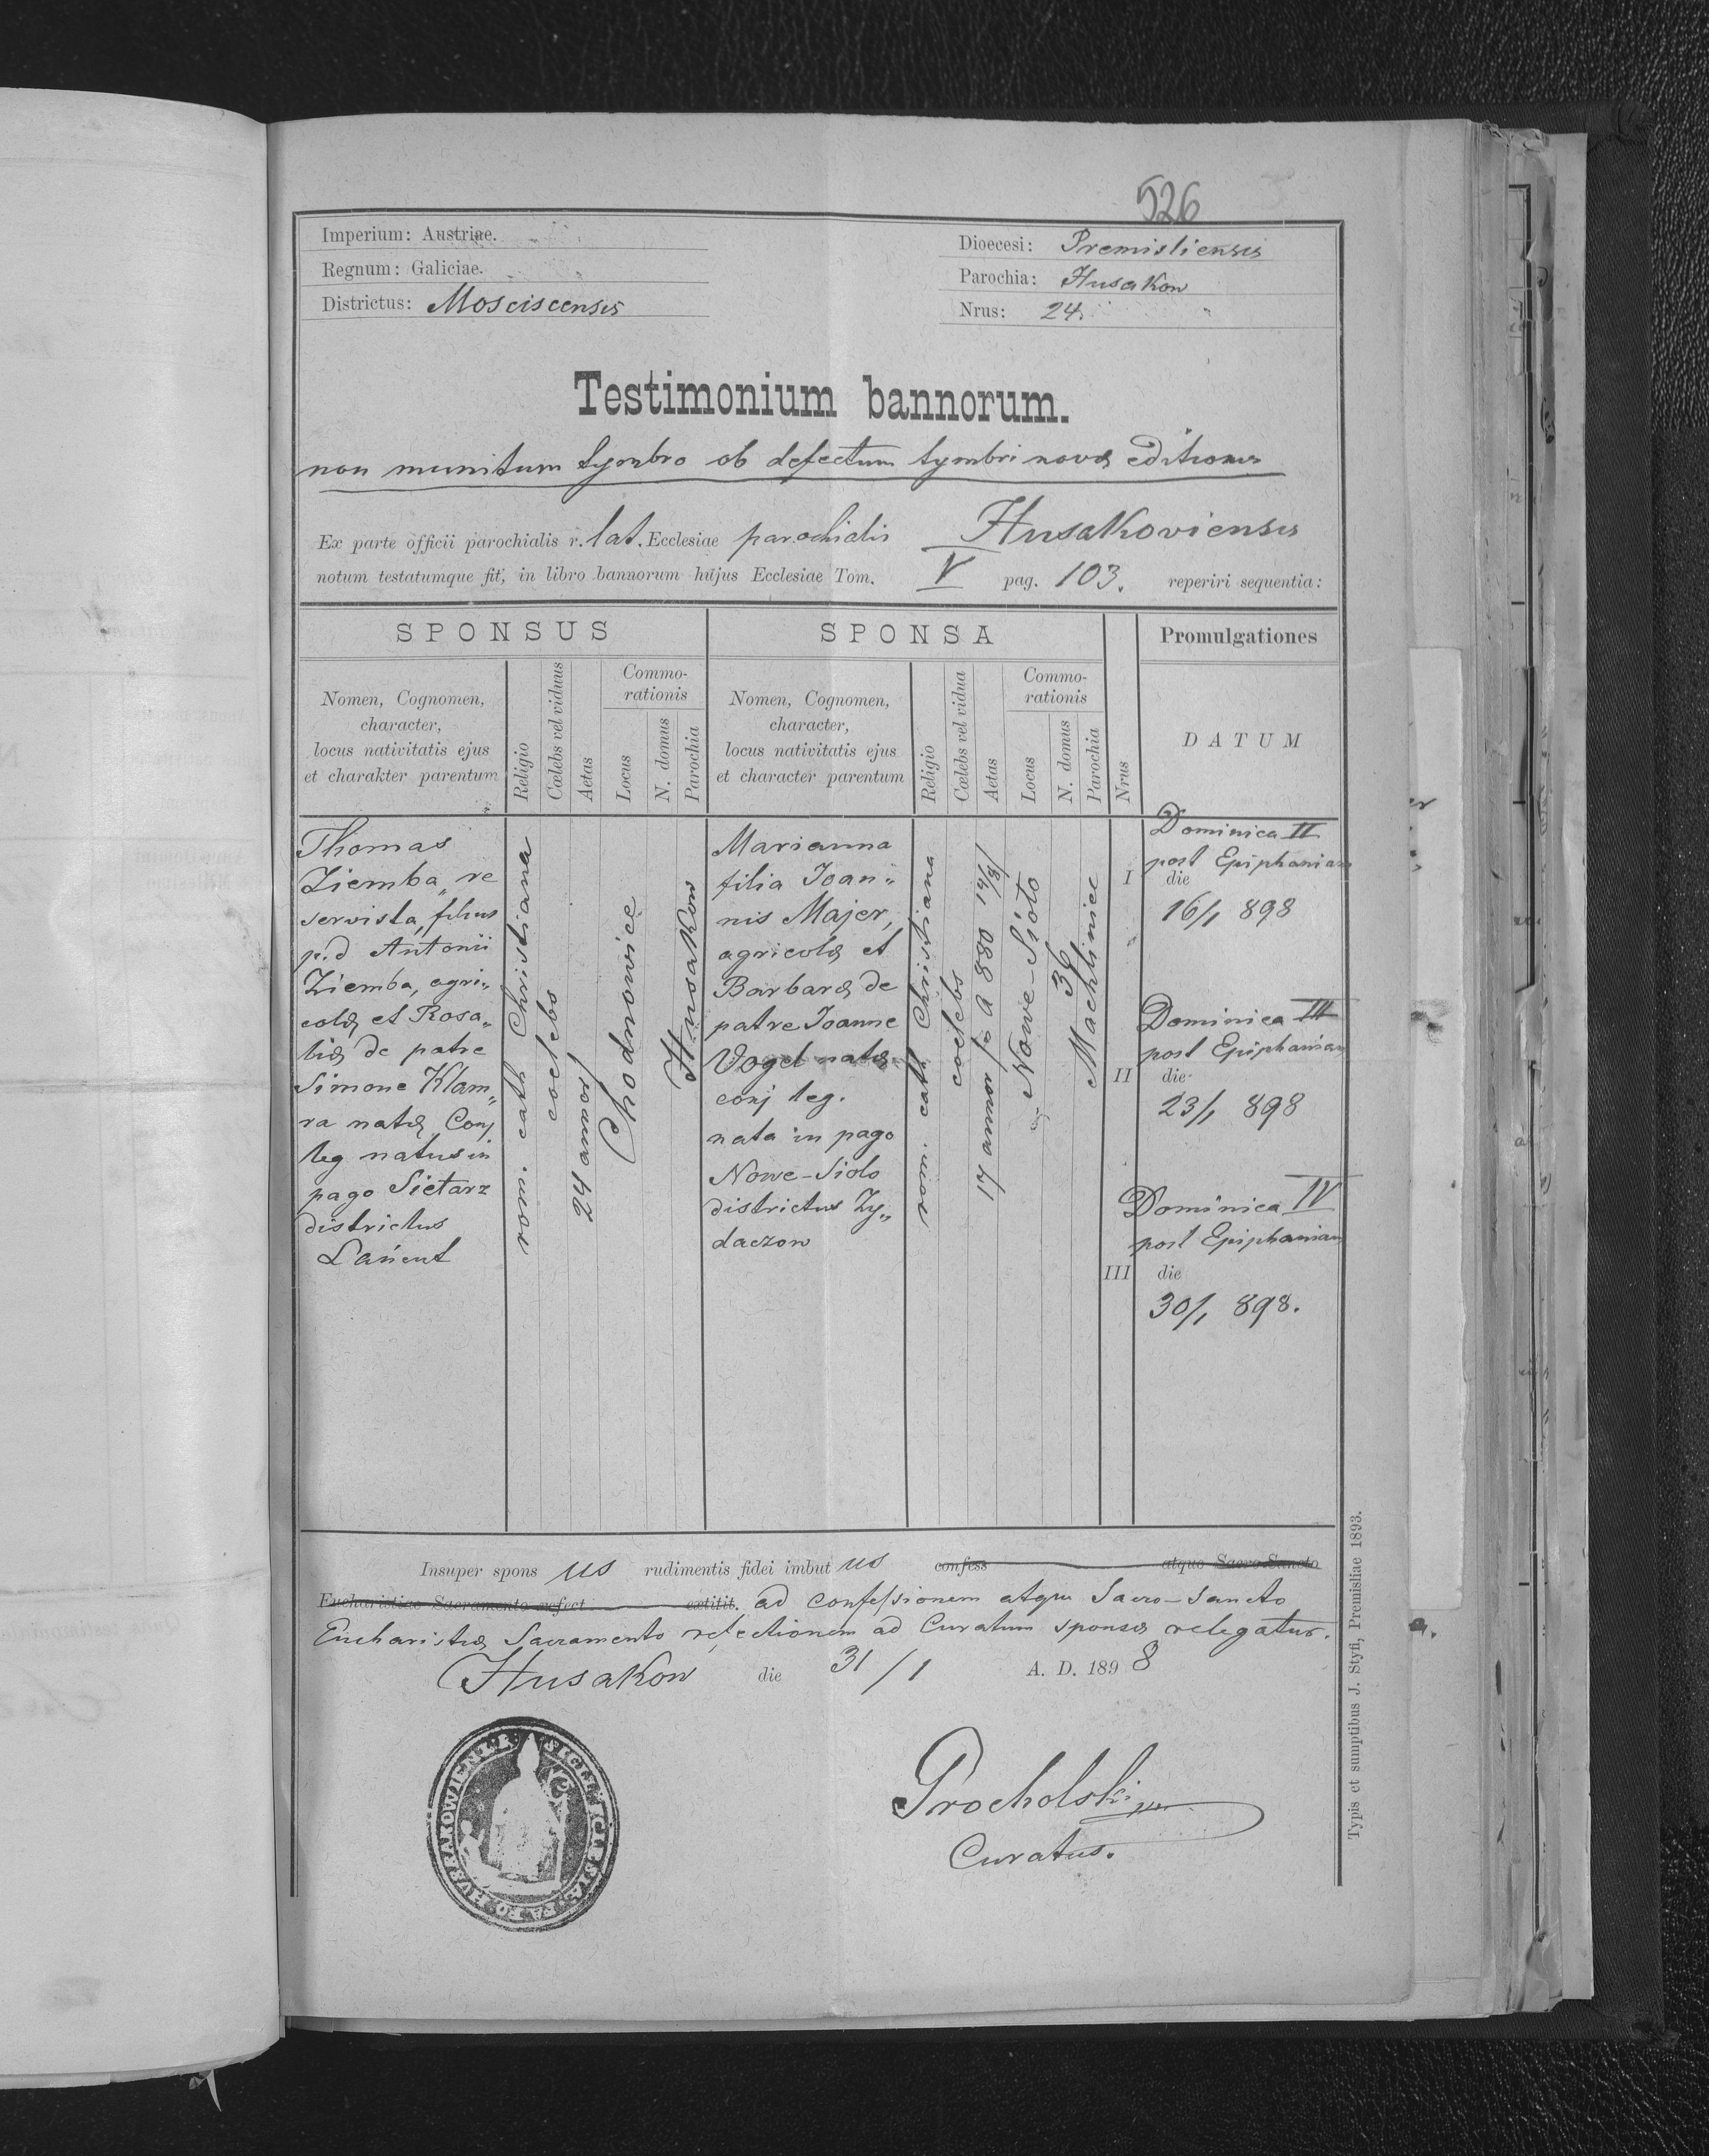 526
Imperium: Austriae.
Regnum: Galiciae.
Districtus: Mosciscensis
Dioecesi: Premisliensis
Parochia: Husakow
Nrus: 24.
Testimonium bannorum.
non munitum tymbro ob defectum tymbri novæ editionis
Ex parte officii parochialis r. lat. Ecclesiae parochialis Husakoviensis
notum testatumque fit, in libro bannorum hujus Ecclesiae Tom. V pag. 103. reperiri sequentia:
SPONSUS
SPONSA
Promulgationes
Nomen, Cognomen,
character,
locus nativitatis ejus
et charakter parentum
Religio
Cœlebs vel viduus
Aetas
Commo-
rationis
Locus
N. domus
Parochia
Nomen, Cognomen,
character,
locus nativitatis ejus
et character parentum
Religio
Cœlebs vel vidua
Aetas
Commo-
rationis
Locus
N. domus
Parochia
Nrus
DATUM
Thomas
Ziemba, re
servista, filius
p.d Antonii
Ziemba, agri„
colæ et Rosa„
liæ de patre
Simone Klam„
ra natæ Conj
leg natus in
pago Sietarz
districtus
Łańcut
rom. cath Christiana
coelebs
24 annor/
Chodnowice
Husakow
Marianna
filia Joan„
nis Majer,
agricolæ et
Barbaræ de
patre Joanne
Vogel natæ
conj leg.
nata in pago
Nowe-Siolo
districtus Zy„
daczow
rom. cath Christiana
coelebs
17 annor A 880 14/8/
Nowe-Sioło
36
Machlinice
I
Dominica II
post Epiphaniam
die
16/1 898
II
Dominica III
post Epiphaniam
die
23/1 898
III
Dominica IV
post Epiphaniam
die
30/1 898.
Insuper spons us rudimentis fidei imbut us confess atque Sacro-Sancto
Eucharistiae Sacramento refect extitit. ad confessionem atque Sacro-Sancto
Eucharistiæ Sacramento refectionem ad Curatum sponsæ relegatur.
Husakow die 31/1 A. D. 1898
Procholski
Curatus.
Typis et sumptibus J. Styfi, Premisliae 1893.